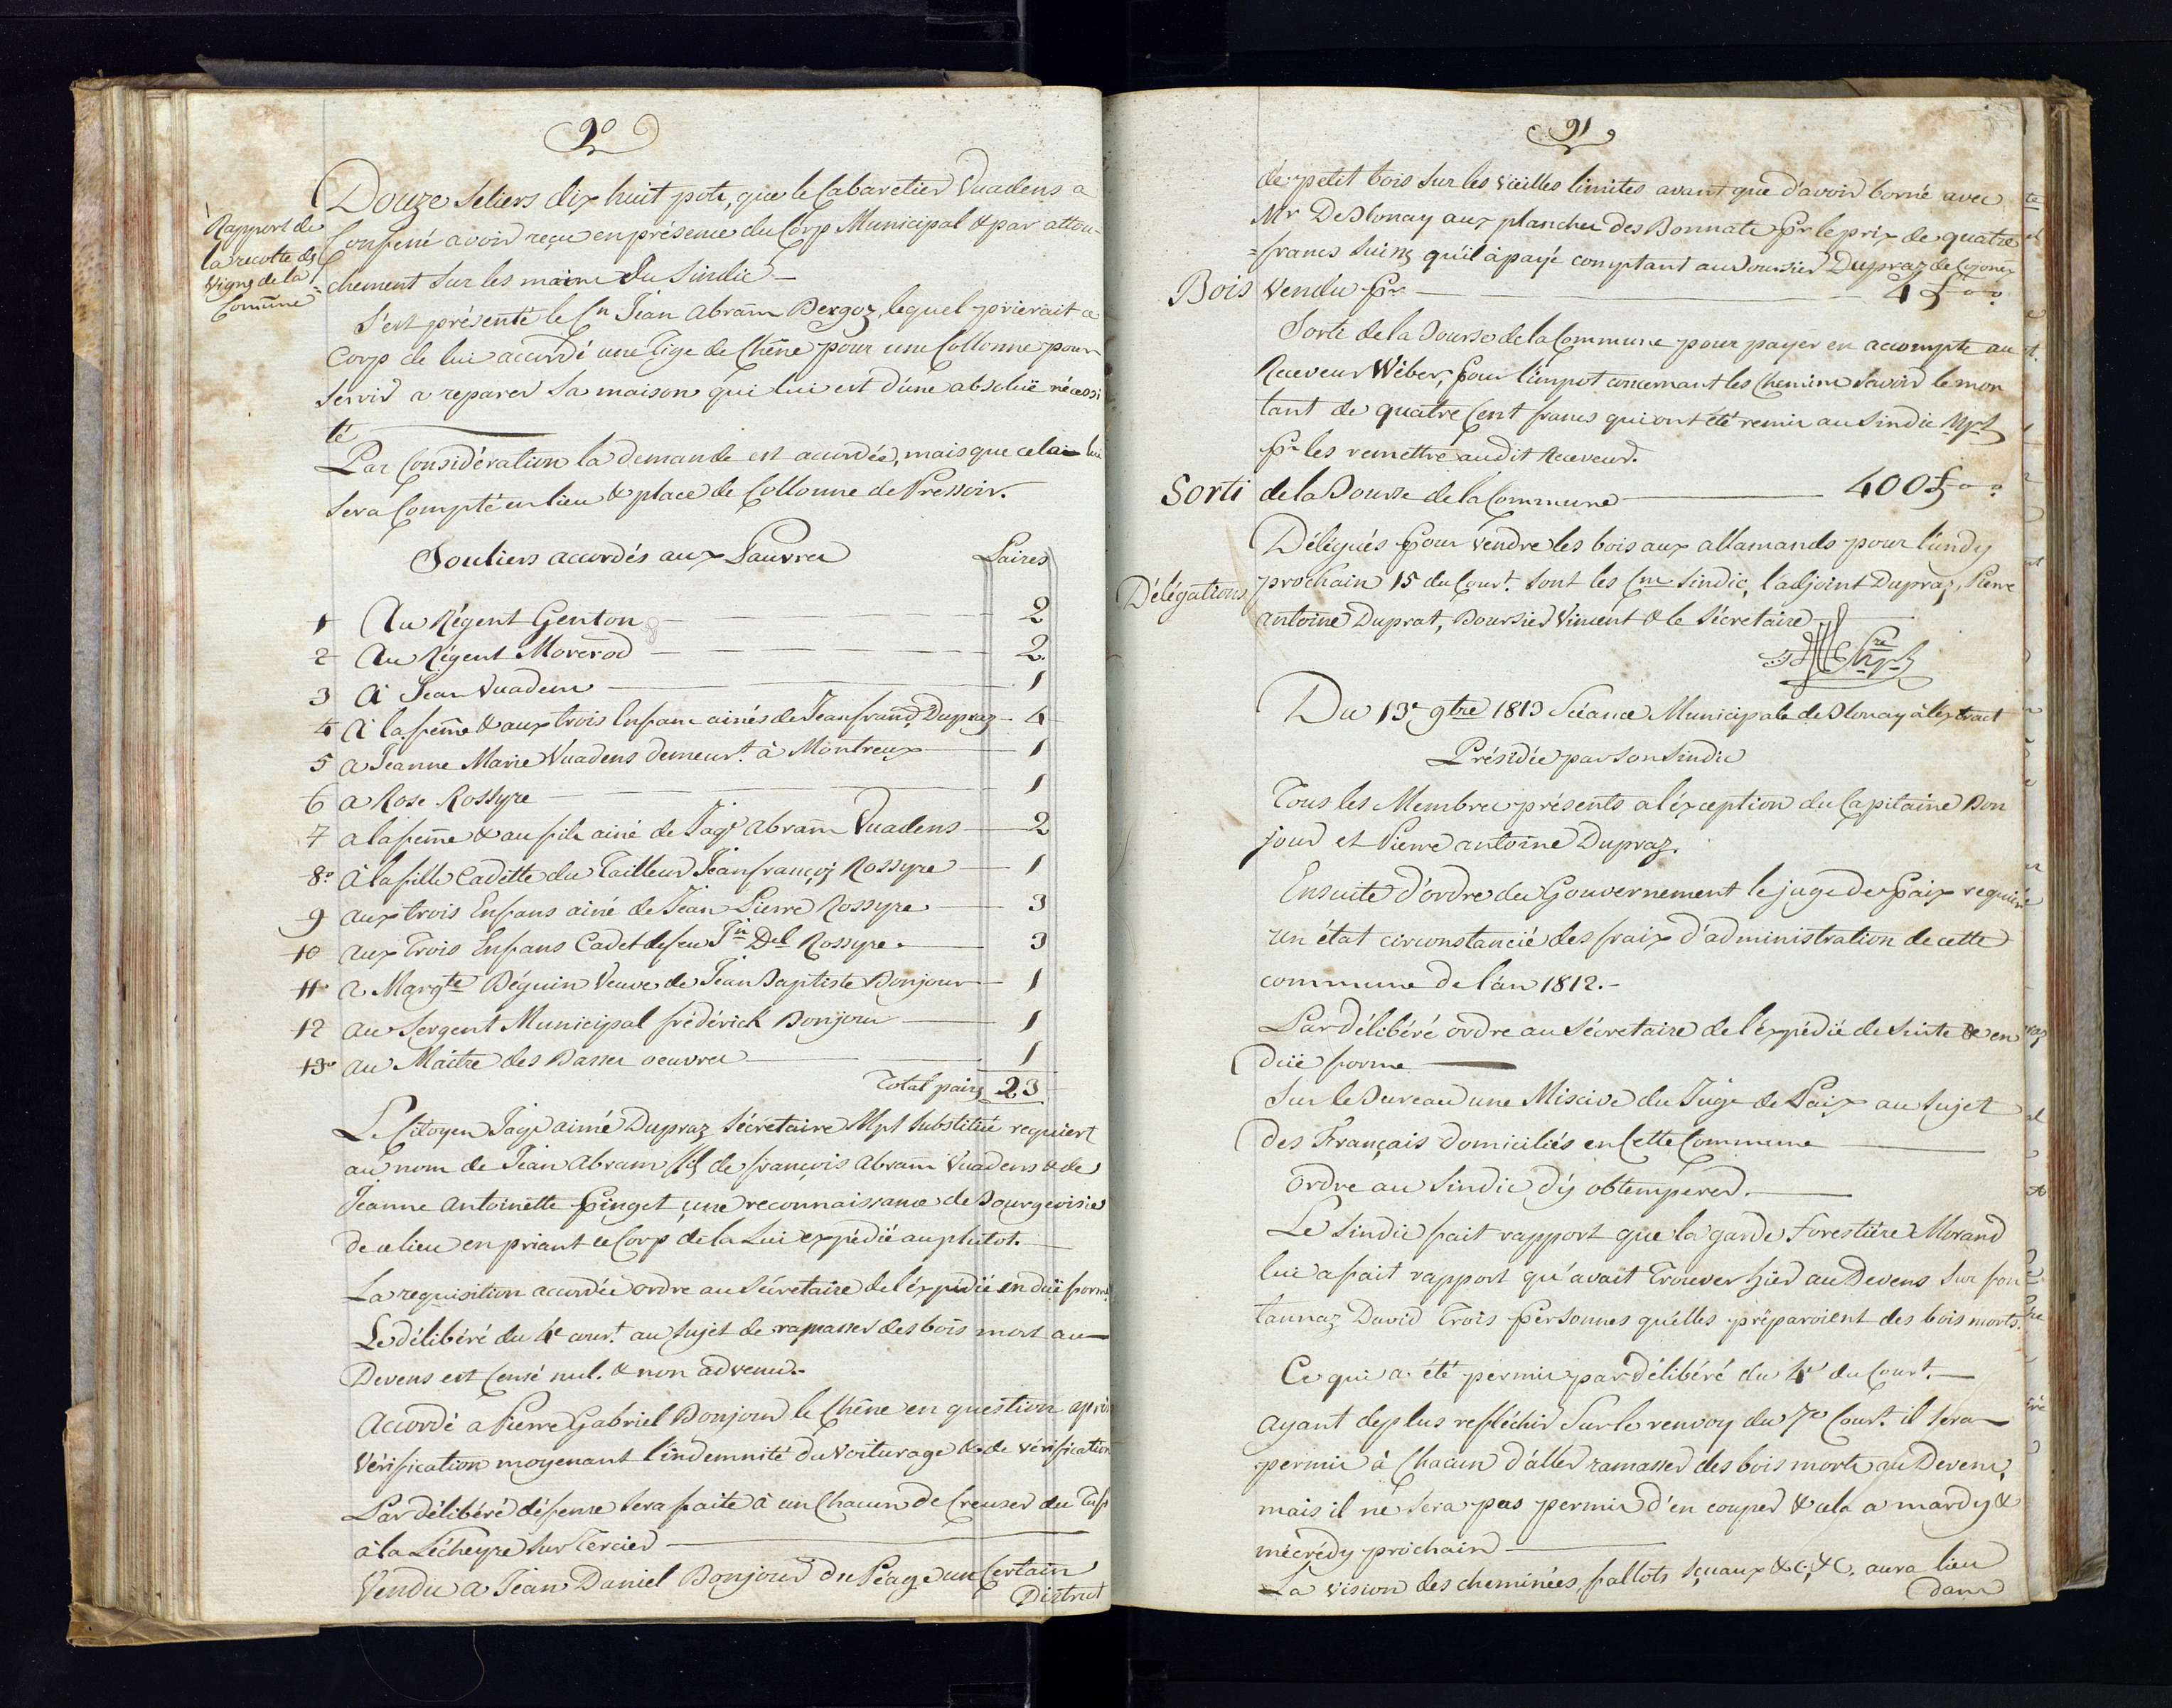 90
Rapport de
la recolte des
Vigns de la
Commune
Douze Setiers dix huit pots, que le Cabaretier Vuadens a
Confessé avoir reçu en présence du Corp Municipal & par attou-
chement sur les mains du Sindic
S'est présenté le Cn Jean Abram Bergoz, lequel prierait ce
Corp de lui accordé une Tige de Chêne pour une Collonne pour
servir a reparer sa maison qui lui est d'une absoluë nécessi
té
Par Considération la demande est accordée, mais que cela lui
sera Compté en lieu & place de Collonne de Pressoir.
Souliers accordés aux Pauvres Paires
1 Au Régent Genton 2
2 Au Régent Morerod 2.
3 à Jean Vuadens 1
4 à la femme & aux trois Enfans ainés de Jean frans Dupraz 4
5 a Jeanne Marie Vuadens demeurt. à Montreux 1
6 a Rose Rossyre 1
7 a la femme & au fils ainé de Jaqs Abram Vuadens 2
8º à la fille Cadette du Tailleur Jean françois Rossyre 1
9 aux trois Enfans ainé de Jean Pierre Rossyre 3
10 aux Trois Enfans Cadet de feu Jn Del Rossyre. 3
11 a Margte Béguin Veuve de Jean Baptiste Bonjour 1
12 au Sergent Municipal frédérich Bonjour 1
13 au Maitre des Basses oeuvres 1
Total paires 23
Le Citoyen Jaqs aimé Dupraz Sécretaire Mpl substitué requiert
au nom de Jean Abram fils de françois Abram Vuadens & de
Jeanne Antoinette Pinget, une reconnaissance de Bourgeoisie
de ce lieu en priant ce Corp de la Lui expédié au plutot.
La requisition accordée ordre au Sécretaire de l'éxpédié en duë forme
Le délibéré du 4e court. au sujet de ramasser des bois mort au
Devens est Censé nul. & non advenu.-
Accordé a Pierre Gabriel Bonjour le Chêne en question après
Vérification moyenant l'indemnité du Voiturage & de vérification
Par délibéré défense sera faite à un Chacun de Creuser du Tuf
à la Lécheyre sur Tercier
Vendu a Jean Daniel Bonjour du Péage un Certain
District
91
de petit bois sur les vieilles limites avant que d'avoir borné avec
Mr DeBlonay aux planches des Bonnats pr le prix de quatre
francs suiss qu'il à payé comptant au Boursier Dupraz de Cojonnex
Bois Vendu pr 4 £ " "
Sorti de la Bourse de la Commune pour payer en accompte au
Receveur Wéber, pour l'impot concernant les Chemins Savoir le mon
tant de quatre Cent francs qui ont été remis au Sindic Mpl
pr les remettre audit Receveur.
Sorti de la Bourse de la Commune 400 £ " "
Délégations
Délégués pour vendre les bois aux allamands pour lundy
prochain 15 du Court. sont les Cns Sindic, l'adjoint Dupraz, Pierre
antoine Duprat, Boursier Vincent & le Sécretaire
Du 13e 9bre 1813 Séance Municipale de Blonay à l'extract
Présidée par son Sindic
Tous les Membres présents a l'éxception du Capitaine Bon
jour et Pierre antoine Dupraz.
Ensuite d'ordre du Gouvernement le juge de Paix requière
un état circonstancié des fraix d'administration de cette
commune de l'an 1812.-
Par délibéré ordre au Sécretaire de l'expédié de suite & en
duë forme
Sur le Bureau une Miscive du Juge de Paix au sujet
des Français domiciliés en Cette Commune
Ordre au Sindic d'y obtempérer.
Le Sindic fait rapport que la garde Forestière Morand
lui a fait rapport qu'avait Trouver hier au Devens sur fon
tannaz David Trois personnes qu'elles préparoient des bois morts.
Ce qui a été permis par délibéré du 4e du Court.
ayant deplus réfléchir sur le renvoy du 7e Court. il sera
permis à Chacun d'aller ramasser des bois morts au Devens,
mais il ne sera pas permis d'en couper & cela a mardy &
mécrédy prochain
La vision des cheminées, fallots, sçeaux &c, &c. aura lieu
dans